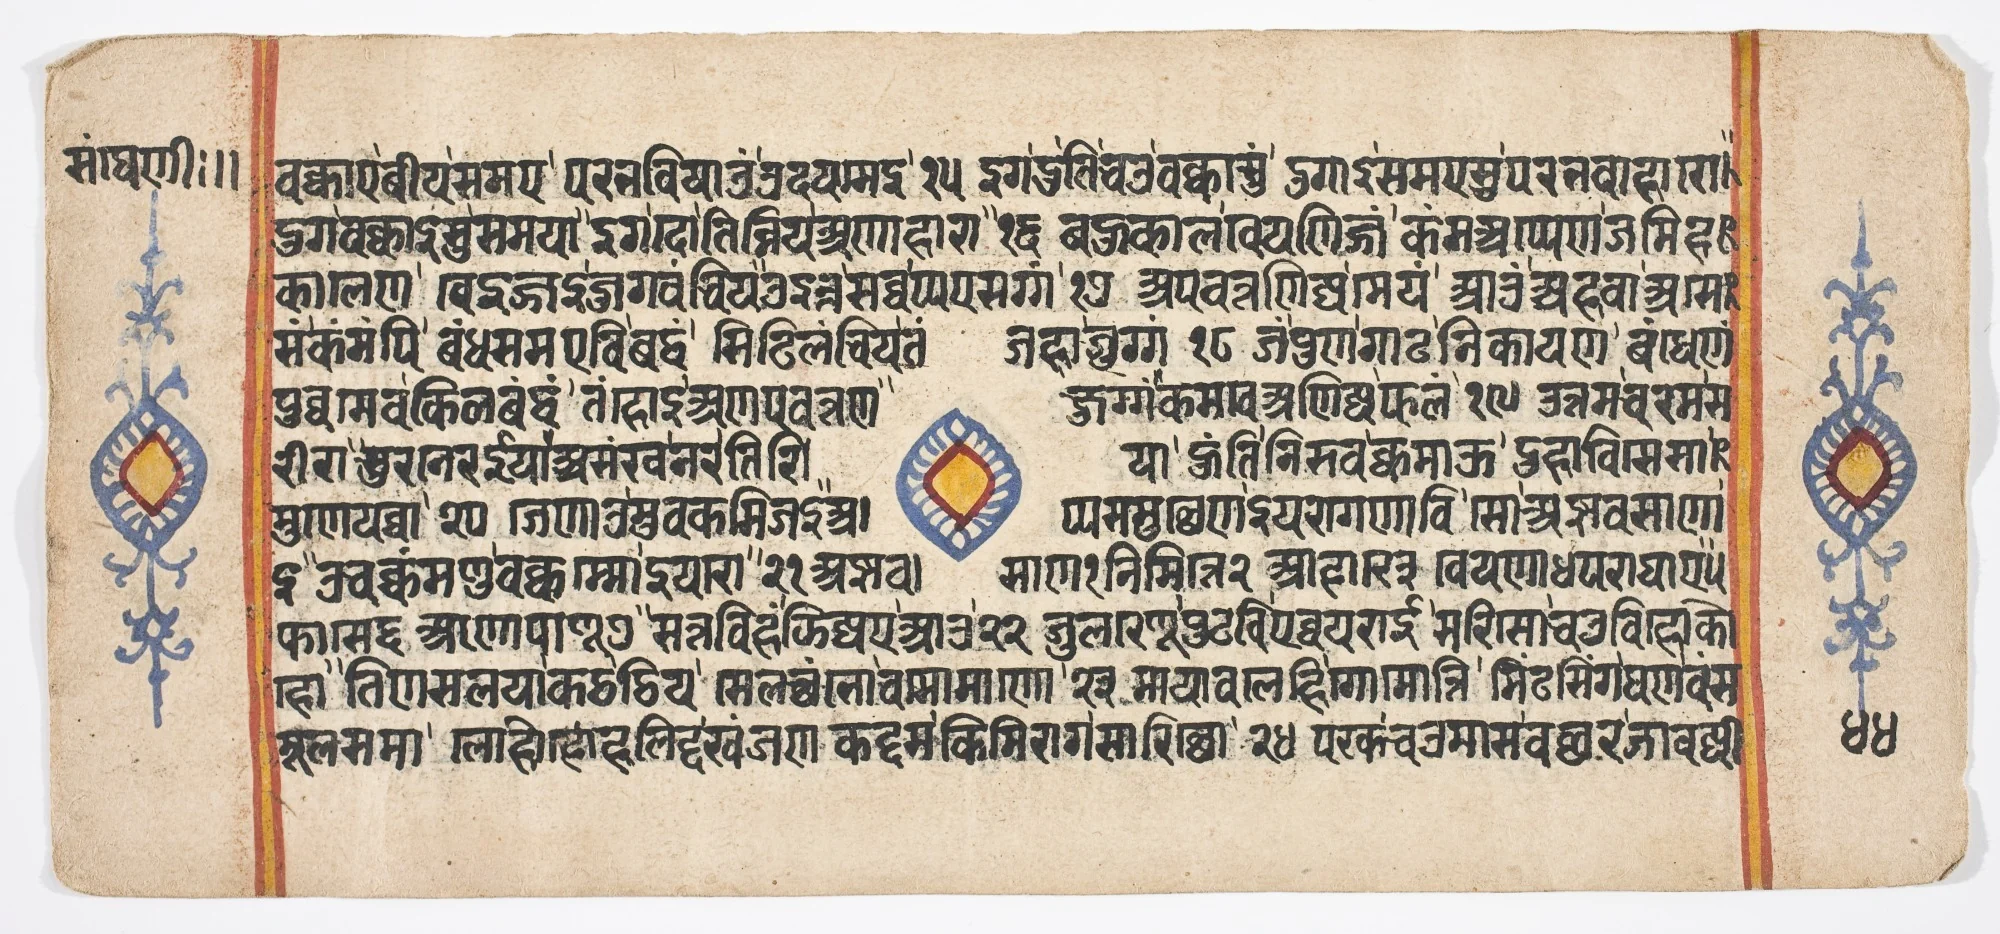 संघेणी:॥
वक्काए बीयसमए परभवियाउं उदयमेइ १५ इगदुतिचउवक्कासुं दुगाइसमएसु परभवाहारो
दुगवक्काइसु समया इगदोतिन्निय अणाहारा १६ बहुकालवेयणिज्जं कंमं अप्पेण जमिह
कालेण वेइज्जइ जुगवं चिय उइन्नसव्वप्पएसग्गं १७ अपवत्तणिज्जमेयं आउं अहवा असे
सकंमंपि बंधसमएवि बद्धं सिढिलं चिय तं जहाजुग्गं १८ जं पुण गाढनिकायण बंधेणं
पुव्वमेव किल बद्धं तं होइ अणपवत्तण जुग्गं कमवेअणिज्जफलं १९ उत्तमचरमस
रीरा सुरनेरईया असंखनरतिरिया हुंति निरुवक्कमाऊ दुहावि सेसा
मुणेयव्वा २० जेणाउमुवकमिजइ अप्पसमुत्थेण इयरगेणावि सो अज्झवसाणा
इ उवक्कम णुवक्कमो इयरो २१ अज्झवसाण१ निमित्ते२ आहारे३ वेयणा४ पराघाए५
फासे६ आणपाणू७ सत्तविहं झिज्जए आउ २२ जलरेणूपुढविपव्वयराई सरिसो चउविहो को
हो तिणिसलयाकठठिय सेलत्थंभोवमो माणो २३ मायावलेहिगोमोत्ति मिंढसिंगघणवंस
मूलसमा लोहो हलिद्दखंजण कद्दमकिमिरागसारिच्छो २४ परकचउमासवच्छरजावज्जी
४४